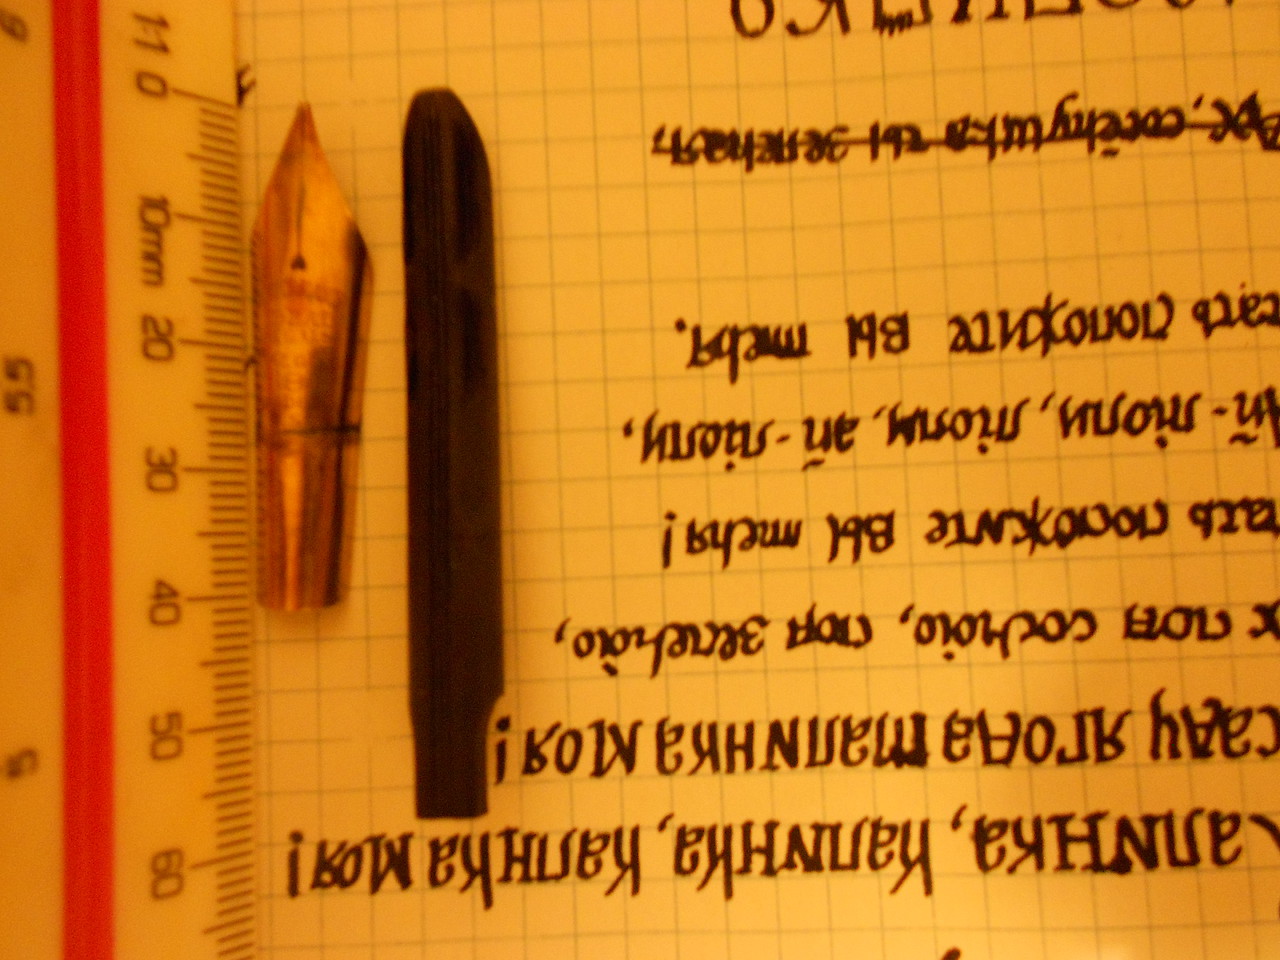 Калинка, калинка, калинка моя!
саду ягода малинка моя!
х под сосною, под зеленою,
пать положите вы меня!
Ай-люли, люли, ай-люли,
ать положите вы меня.
Ах, сосёнушка ты зеленая,
1:1 0 10mm 20 30 40 50 60
55 5